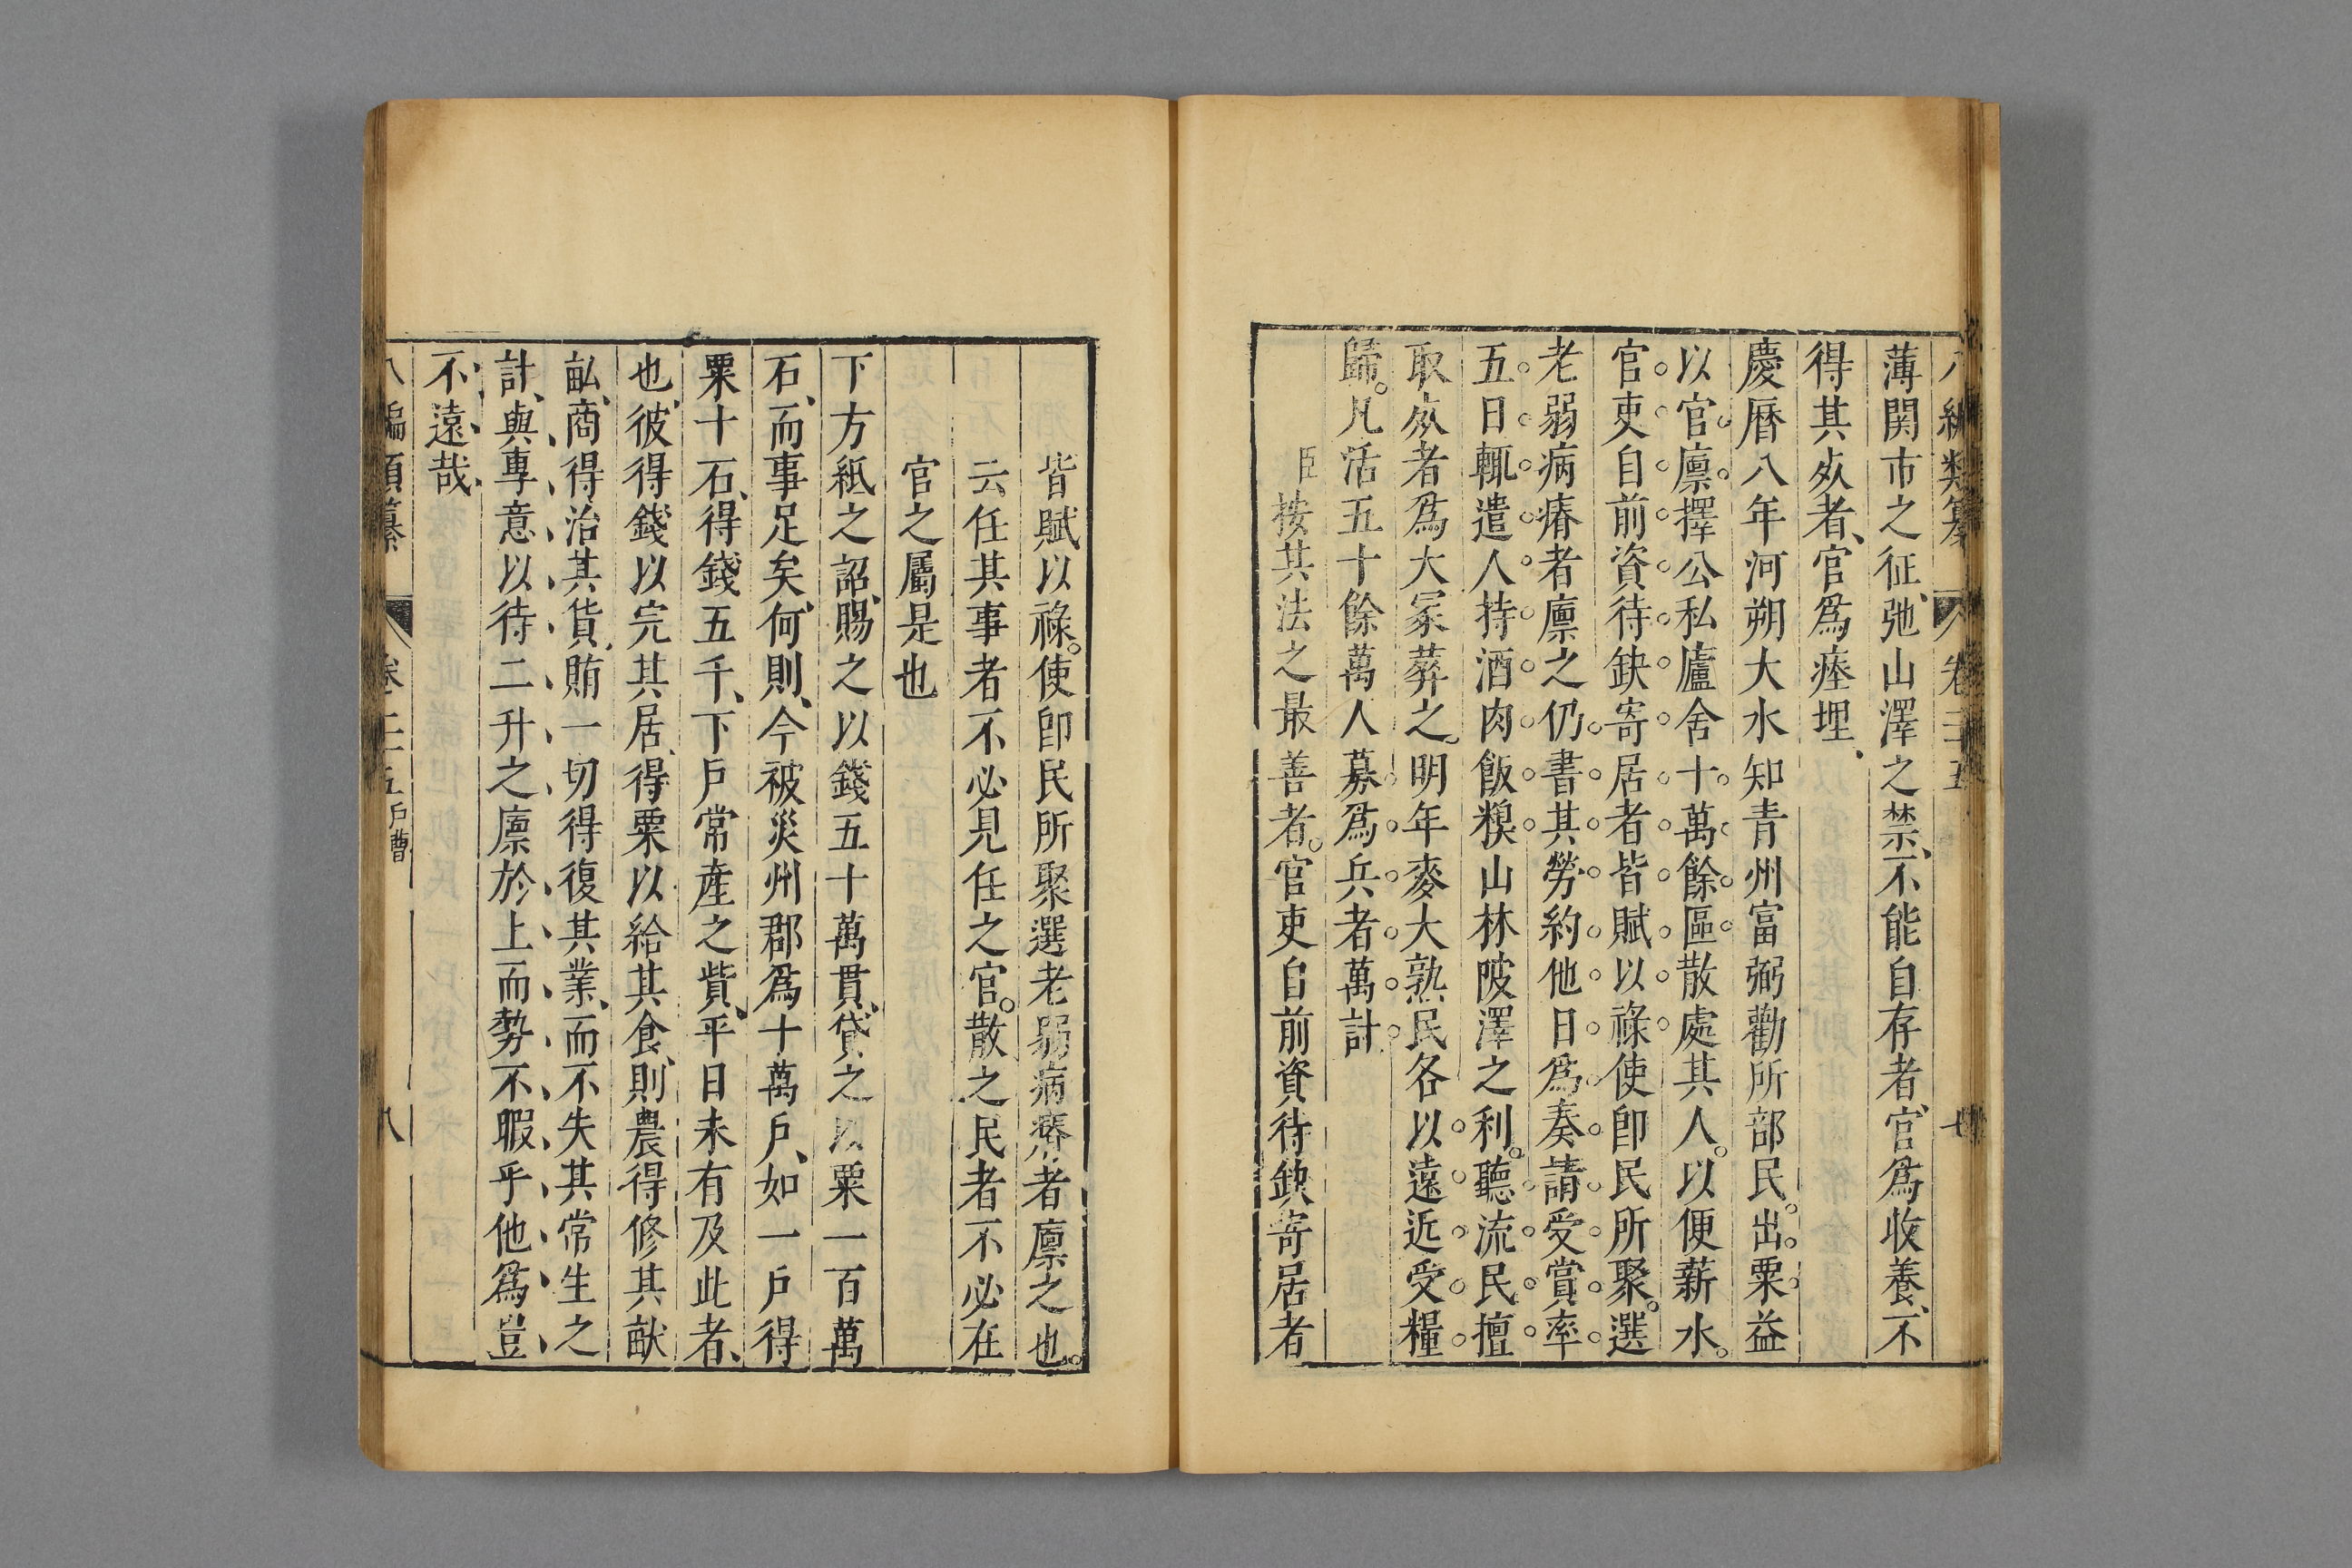 八編類纂 卷二五 七
薄関市之征弛山澤之禁不能自存者官爲收養不
得其死者官爲瘗埋
慶曆八年河朔大水知青州富弼勸所部民出粟益
以官廩擇公私廬舍十萬餘區散處其人以便薪水
官吏自前資待缺寄居者皆賦以祿使卽民所聚選
老弱病瘠者廪之仍書其勞約他日爲奏請受賞率
五日輒遣人持酒肉飯糗山林陂澤之利聽流民擅
取死者爲大冢葬之明年麥大熟民各以遠近受糧
歸凡活五十餘萬人募爲兵者萬計
臣按其法之最善者官吏自前資待缺寄居者
皆賦以祿使卽民所聚選老弱病瘠者廪之也
云任其事者不必見任之官散之民者不必在
官之屬是也
下方紙之詔賜之以錢五十萬貫貸之以粟一百萬
石而事足矣何則今被災州郡爲十萬戶如一戶得
粟十石得錢五千下戶常產之貲平日未有及此者
也彼得錢以完其居得粟以給其食則農得修其畝
畝商得治其貨賄一切得復其業而不失其常生之
計與專意以待二升之廪於上而勢不暇乎他爲豈
不遠哉
八編類纂 卷二五 戶曹 八